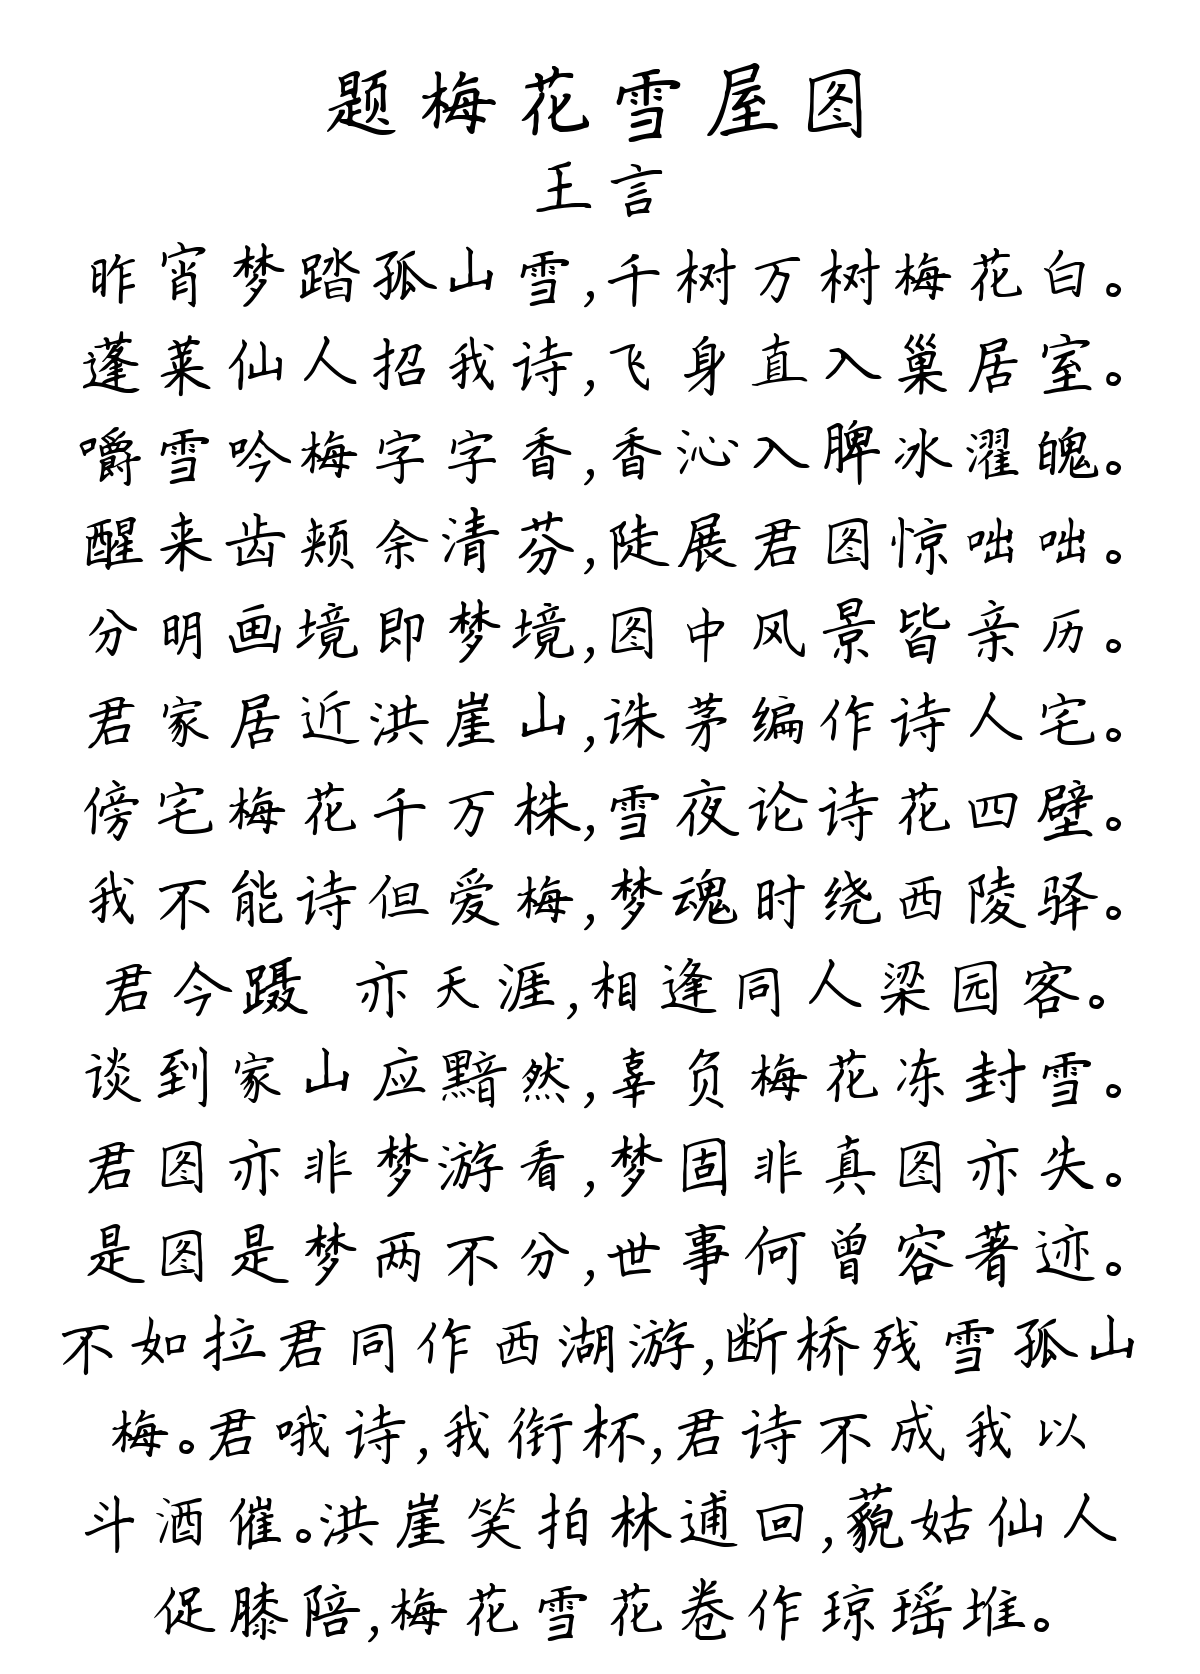 题梅花雪屋图
王言
昨宵梦踏孤山雪,千树万树梅花白。
蓬莱仙人招我诗,飞身直入巢居室。
嚼雪吟梅字字香,香沁入脾冰濯魄。
醒来齿颊余清芬,陡展君图惊咄咄。
分明画境即梦境,图中风景皆亲历。
君家居近洪崖山,诛茅编作诗人宅。
傍宅梅花千万株,雪夜论诗花四壁。
我不能诗但爱梅,梦魂时绕西陵驿。
君今蹑 亦天涯,相逢同人梁园客。
谈到家山应黯然,辜负梅花冻封雪。
君图亦非梦游看,梦固非真图亦失。
是图是梦两不分,世事何曾容著迹。
不如拉君同作西湖游,断桥残雪孤山
梅。君哦诗,我衔杯,君诗不成我以
斗酒催。洪崖笑拍林逋回,藐姑仙人
促膝陪,梅花雪花卷作琼瑶堆。